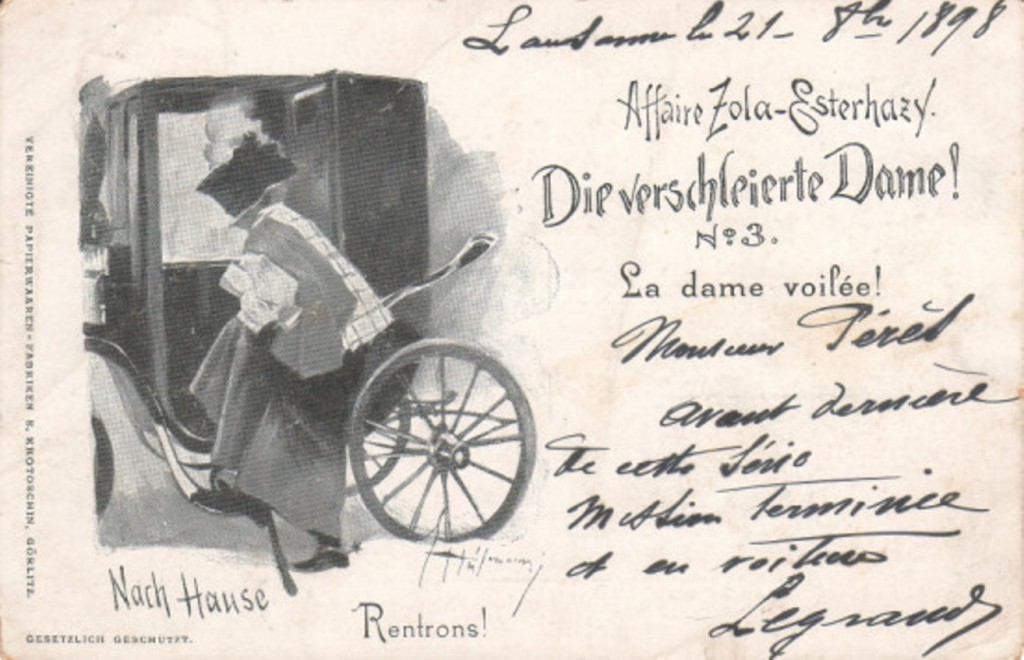 Lausanne le 21 - 8bre 1898
Affaire Zola-Esterhazy.
Die verschleierte Dame!
No 3.
La dame voilée!
Monsieur Péret
avant dernière
de cette Série
Mission terminée
et en voiture
Legrand
Nach Hause
Rentrons!
GESETZLICH GESCHÜTZT.
VEREINIGTE PAPIERWAAREN-FABRIKEN S. KROTOSCHIN, GÖRLITZ.